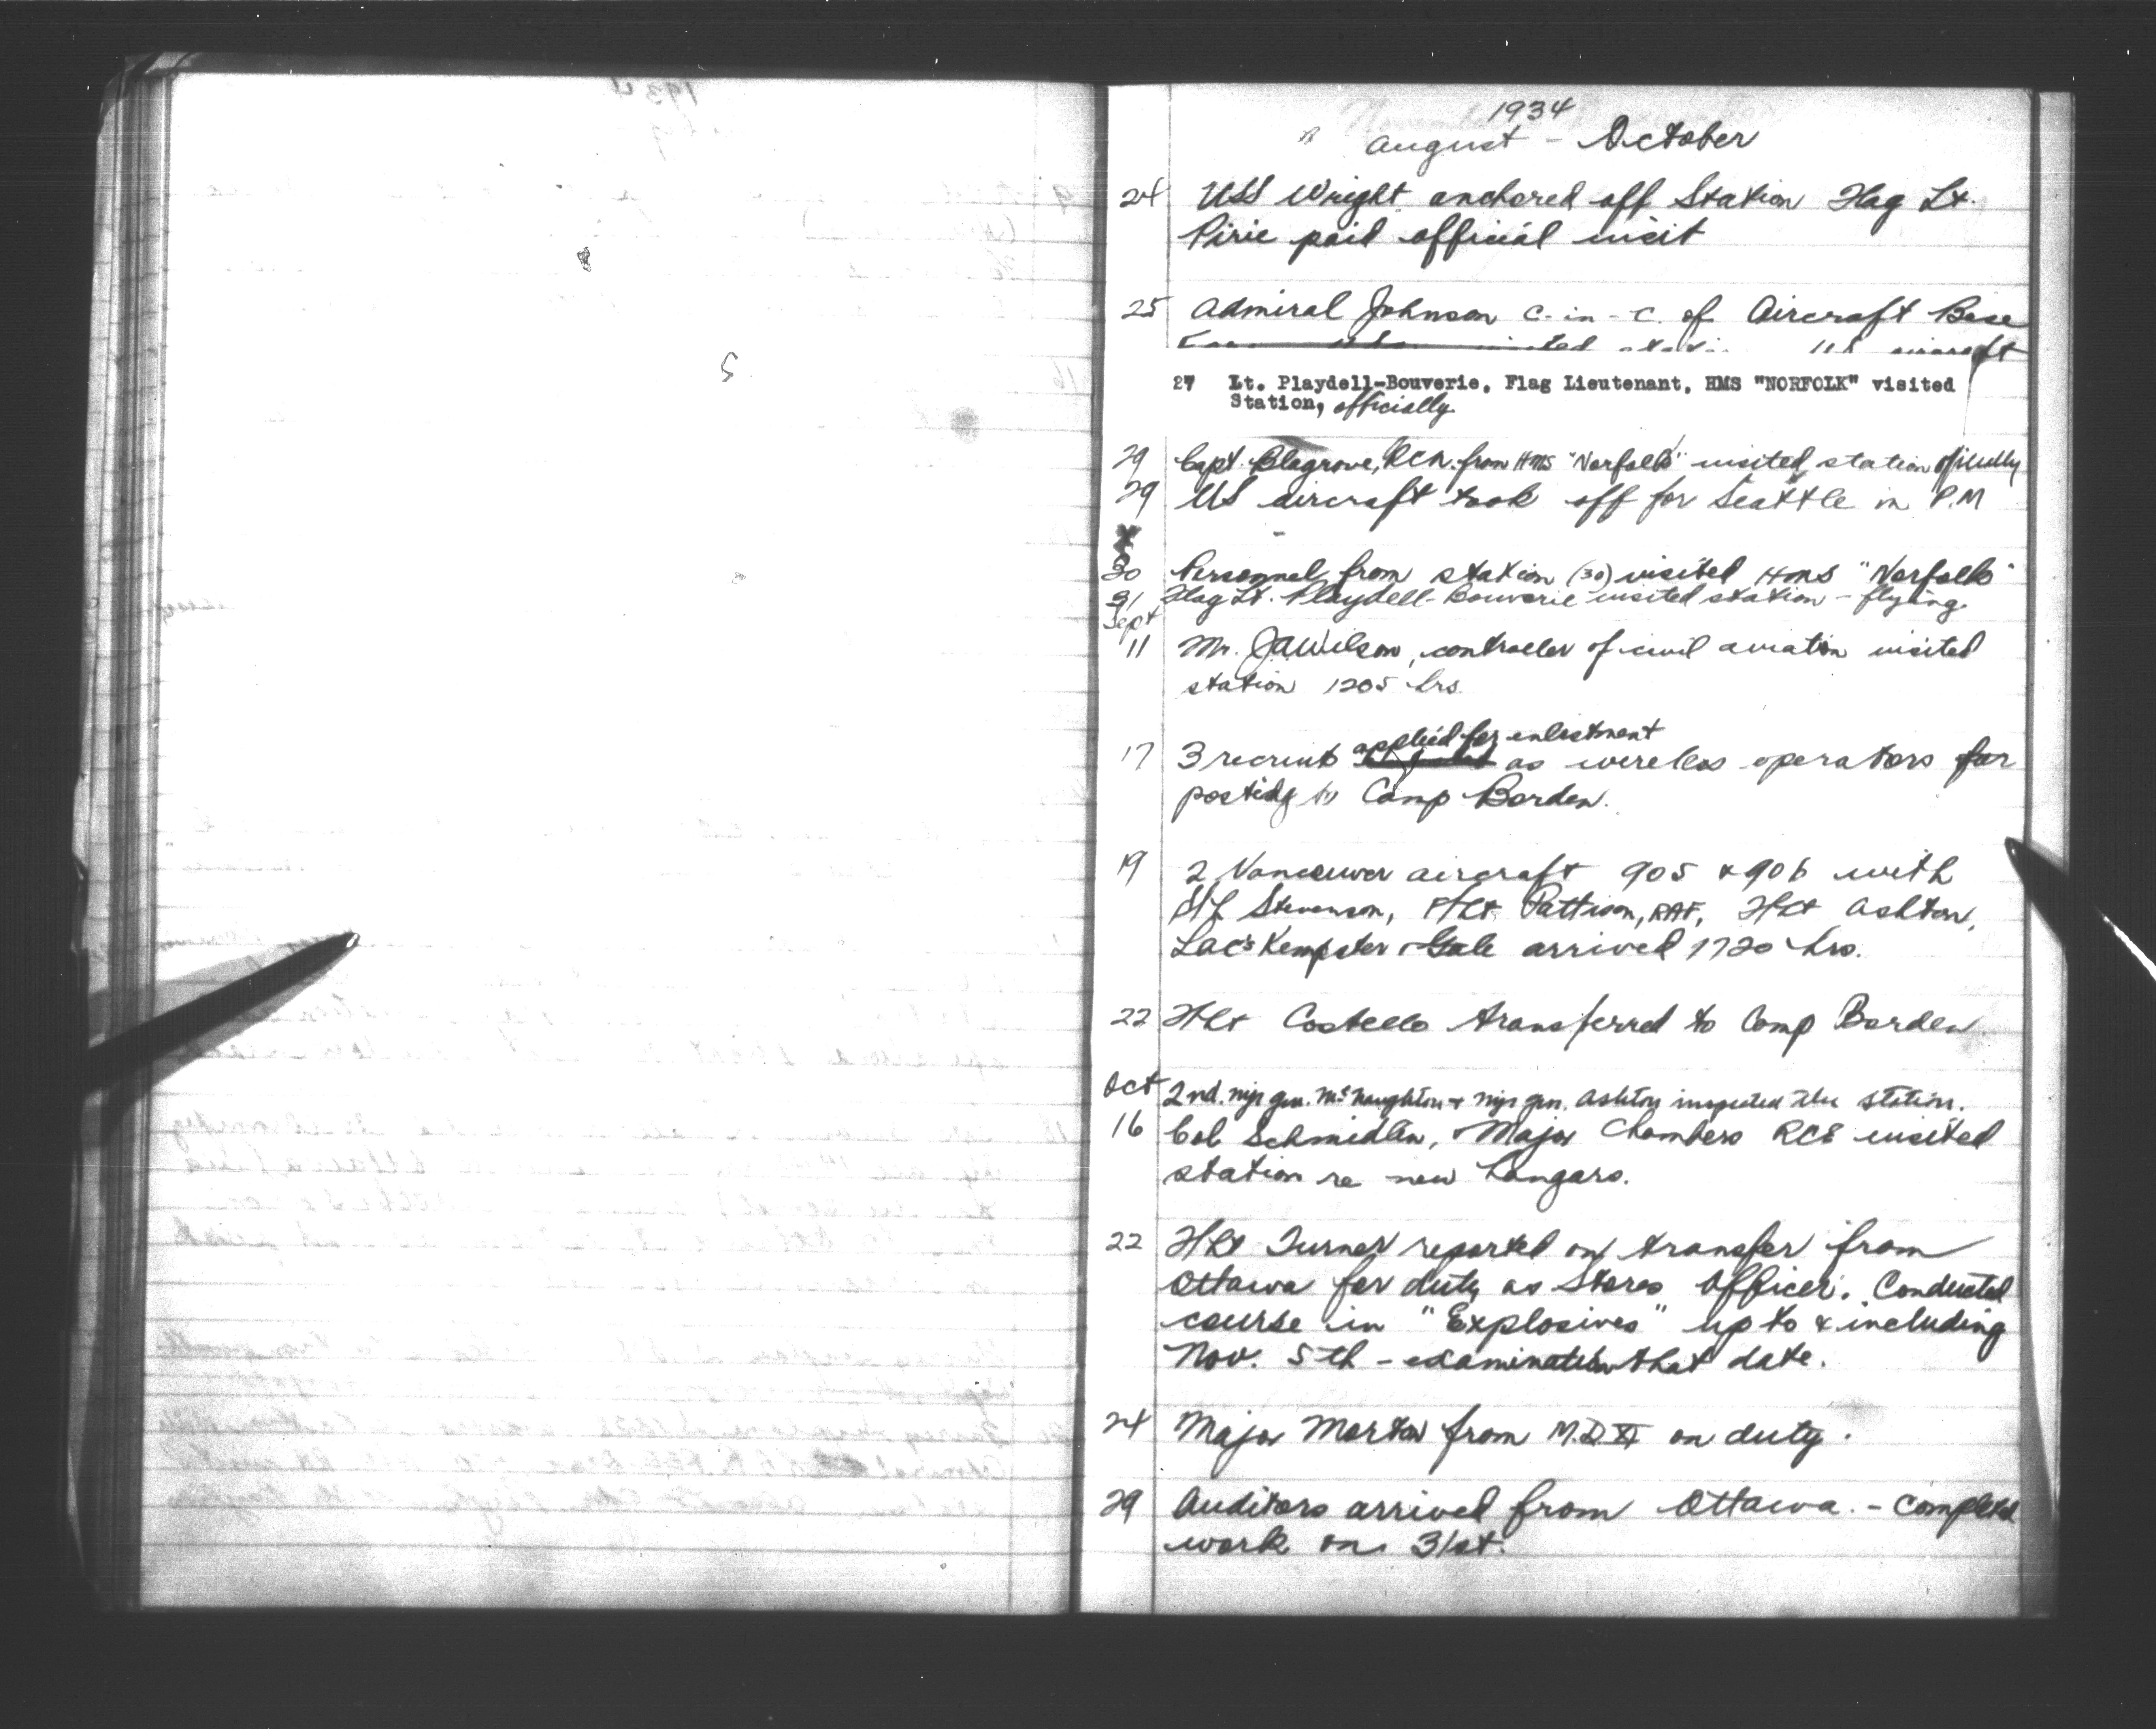 1934
August - October
24 USS Wright anchored off Station Flag Lt.
Pirie paid official visit
25 Admiral Johnson C-in-C. of Aircraft Base
visited US aircraft
27 Lt. Playdell-Bouverie, Flag Lieutenant, HMS "NORFOLK" visited
Station, officially.
29 Capt. Blagrove, RCN. from HMS "Norfolk" visited station officially
29 US aircraft took off for Seattle in P.M
30 Personnel from station (30) visited HMS "Norfolk"
31 Flag Lt. Playdell-Bouverie visited station - flying.
Sept
11 Mr. JAWilson, controller of civil aviation visited
station 1205 hrs.
applied for enlistment
17 3 recruits as wireless operators for
posting to Camp Borden.
19 2 Vancouver aircraft 905 & 906 with
S/L Stevenson, F/Lt. Pattison, RAF, F/Lt Ashton,
Lac's Kempster & Gale arrived 1720 hrs.
22 F/Lt Costello transferred to Camp Borden
Oct 2nd. Mjr Gen. McNaughton & Mjr Gen. Ashton inspected the station.
16 Col Schmidlin, Major Chambers RCE visited
station re new hangars.
22 F/Lt Turner reported on transfer from
Ottawa for duty as Stores Officer. Conducted
course in "Explosives" up to & including
Nov. 5th - examination that date.
24 Major Morton from M.D. XI on duty.
29 Auditors arrived from Ottawa. - Completed
work on 31st.